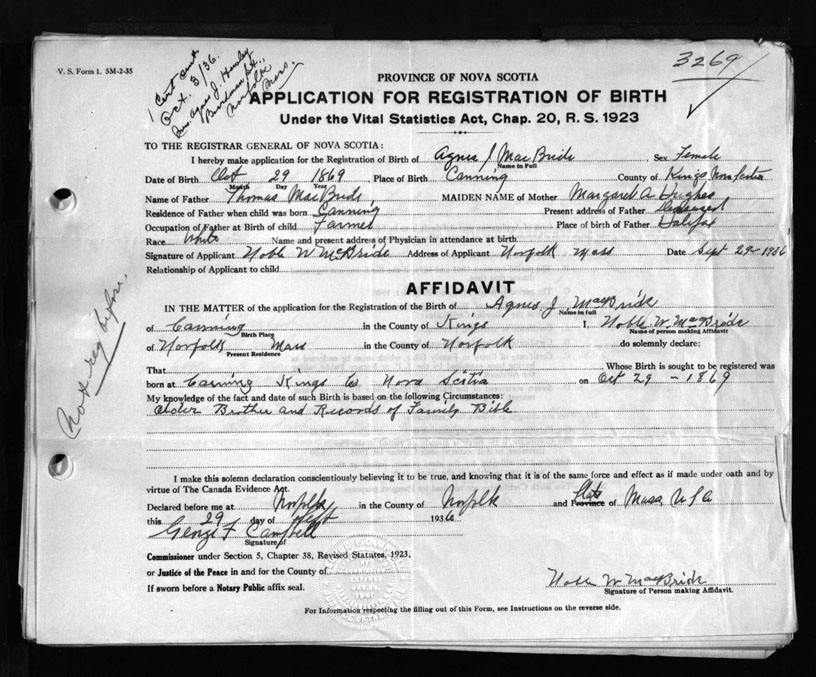 V. S. Form 1. 5M-2-35
1 Cert sent
Oct. 3/36.
Mrs. Agnes J.
Norfolk
Mass.
3269
PROVINCE OF NOVA SCOTIA
APPLICATION FOR REGISTRATION OF BIRTH
Under the Vital Statistics Act, Chap. 20, R. S. 1923
TO THE REGISTRAR GENERAL OF NOVA SCOTIA:
I hereby make application for the Registration of Birth of Agnes J MacBride Sex Female
Name in Full
Date of Birth Oct 29 1869 Place of Birth Canning County of Kings Nova Scotia
Month Day Year
Name of Father Thomas MacBride MAIDEN NAME of Mother Margaret A Hughes
Residence of Father when child was born Canning Present address of Father Deceased
Occupation of Father at Birth of child Farmer Place of birth of Father Halifax
Race White Name and present address of Physician in attendance at birth
Signature of Applicant Noble W McBride Address of Applicant Norfolk Mass Date Sept 29 1936
Relationship of Applicant to child
AFFIDAVIT
IN THE MATTER of the application for the Registration of the Birth of Agnes J. MacBride
Name in full
of Canning in the County of Kings I, Noble W. MacBride
Birth Place Name of person making Affidavit
of Norfolk Mass in the County of Norfolk do solemnly declare:
Present Residence
That Whose Birth is sought to be registered was
born at Canning Kings Co Nova Scotia on Oct 29 - 1869
My knowledge of the fact and date of such Birth is based on the following Circumstances:
Older Brother and Records of Family Bible
Not reg before.
I make this solemn declaration conscientiously believing it to be true, and knowing that it is of the same force and effect as if made under oath and by
virtue of The Canada Evidence Act.
Declared before me at Norfolk in the County of Norfolk and Province State of Mass, U S A
this 29 day of Sept 1936
George F Campbell
Signature of
Commissioner under Section 5, Chapter 38, Revised Statutes, 1923,
or Justice of the Peace in and for the County of
If sworn before a Notary Public affix seal.
Noble W MacBride
Signature of Person making Affidavit.
For Information respecting the filling out of this Form, see Instructions on the reverse side.